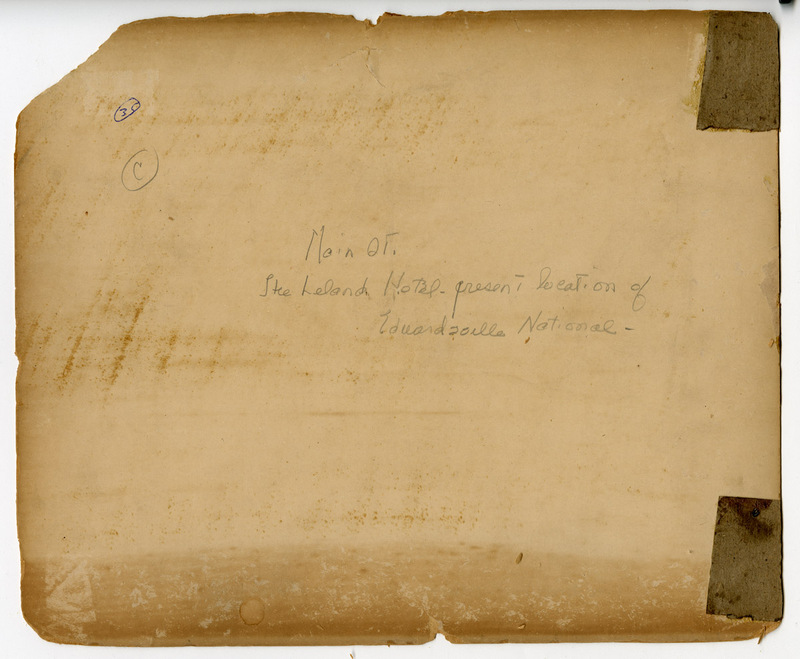 30
C
Main St.
The Leland Hotel - present location of
Edwardsville National -